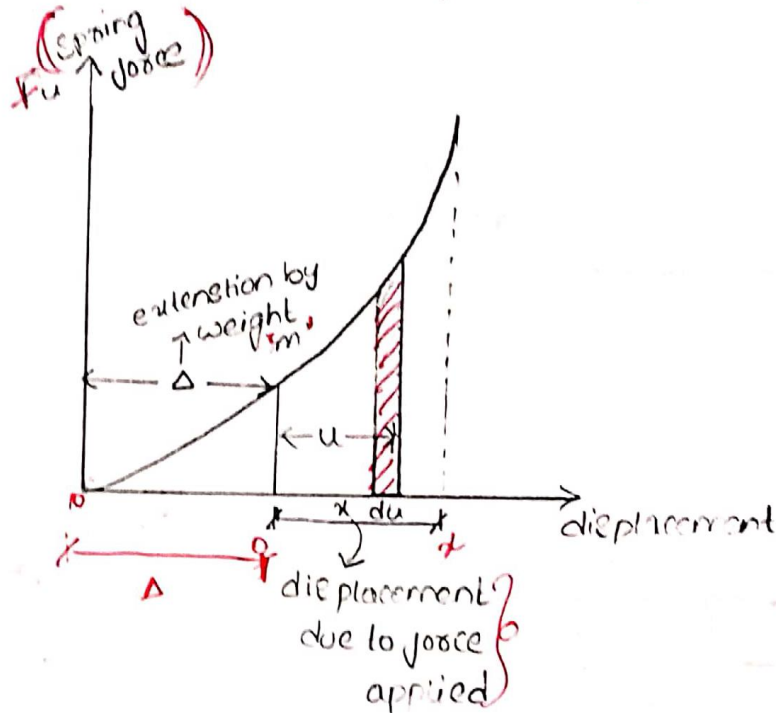 (Spring
force)
Fu
extenstion by
weight
'm'
Δ
u
x du
displacement
Δ
displacement
due to force
applied